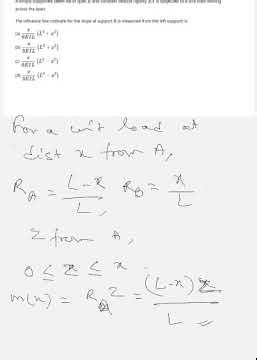 A simply supported beam of span L and constant flexural rigidity EI is subjected to a unit load moving
across the span.
The influence line ordinate for the slope at support B is measured from the left support is
(a) x/6EIL (L² + x²)
(b) x/3EIL (L² + x²)
(c) x/6EIL (L² - x²)
(d) x/3EIL (L² - x²)
For a unit load at
dist x from A,
R_A = L-x/L, R_B = x/L
Z from A,
0 ≤ Z ≤ x
m(x) = R_A Z = (L-x)Z/L